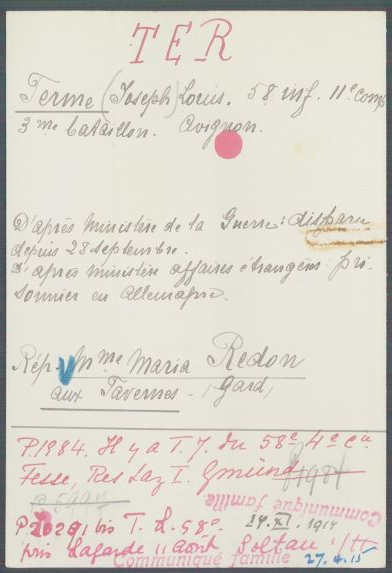 TER
Terme (Joseph) Louis. 58 inf. 11e comp
3me bataillon. Avignon.
D'après Ministère de la Guerre: disparu
depuis 28 septembre.
D'après ministère affaires étrangères pri-
sonnier en Allemagne.
Rép. Mme Maria Redon
aux Tavernes - (Gard)
P.1984. Il y a T. J. du 58e 4e Cie
Fesse, Res Laz I. Gmünd
Communiqué famille
P 20291 bis T. L. 58e. 24. XI. 1914
pris Lagarde 11 août Soltau
Communiqué famille 27.4.15